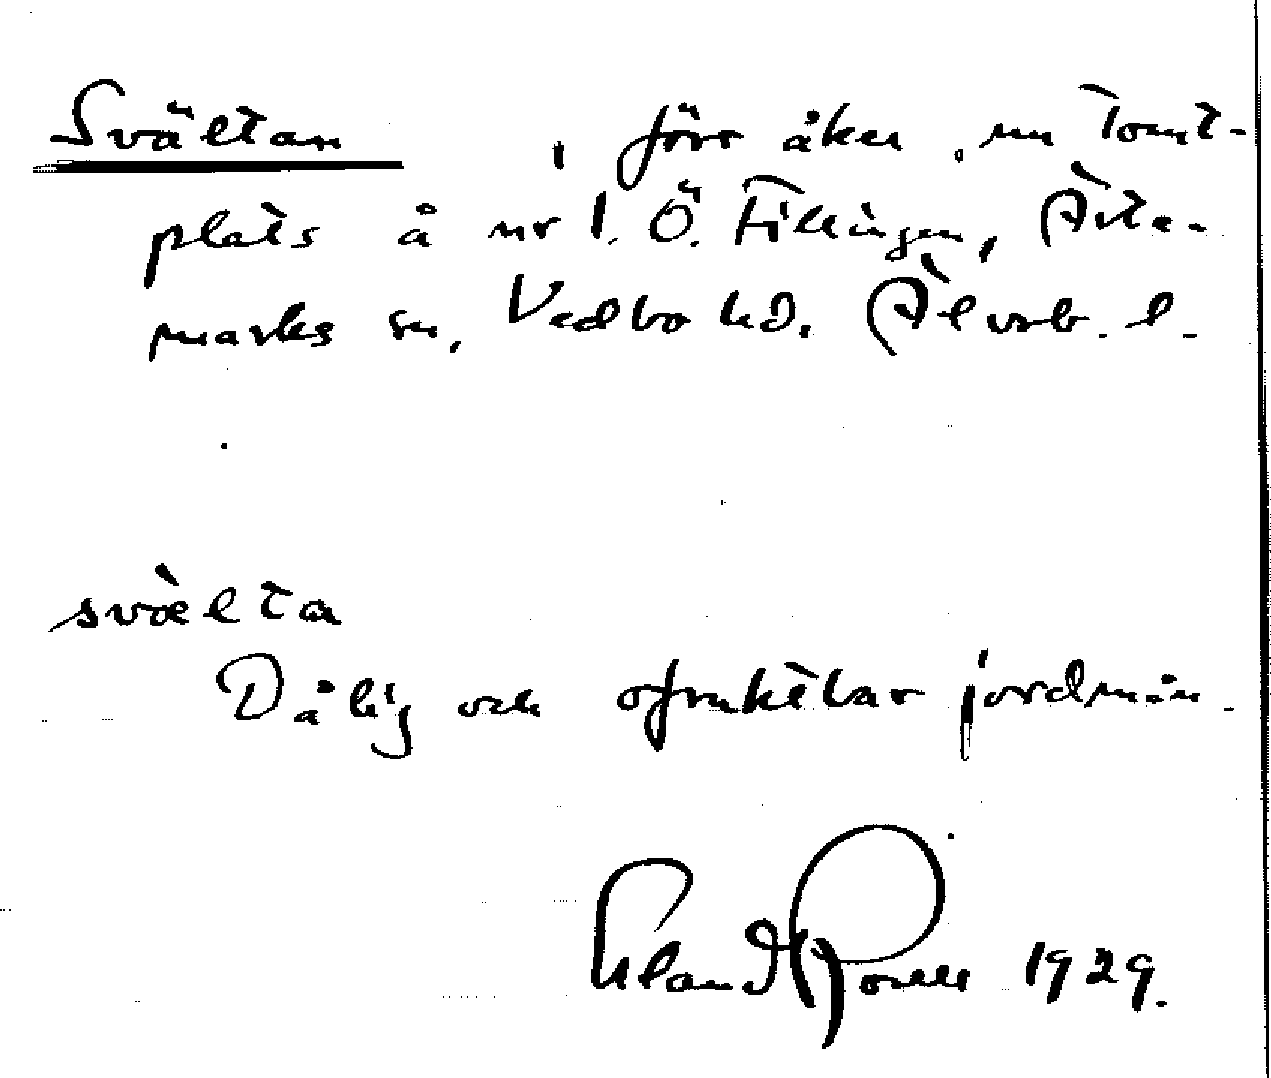 Svältan, förr åker, nu Tomt-
plats å nr 1. Ö. Fillingen, Årte-
marks sn, Vedbo hd. Älvsb. l.
svälta
Dålig och ofruktbar jordmån.
1929.